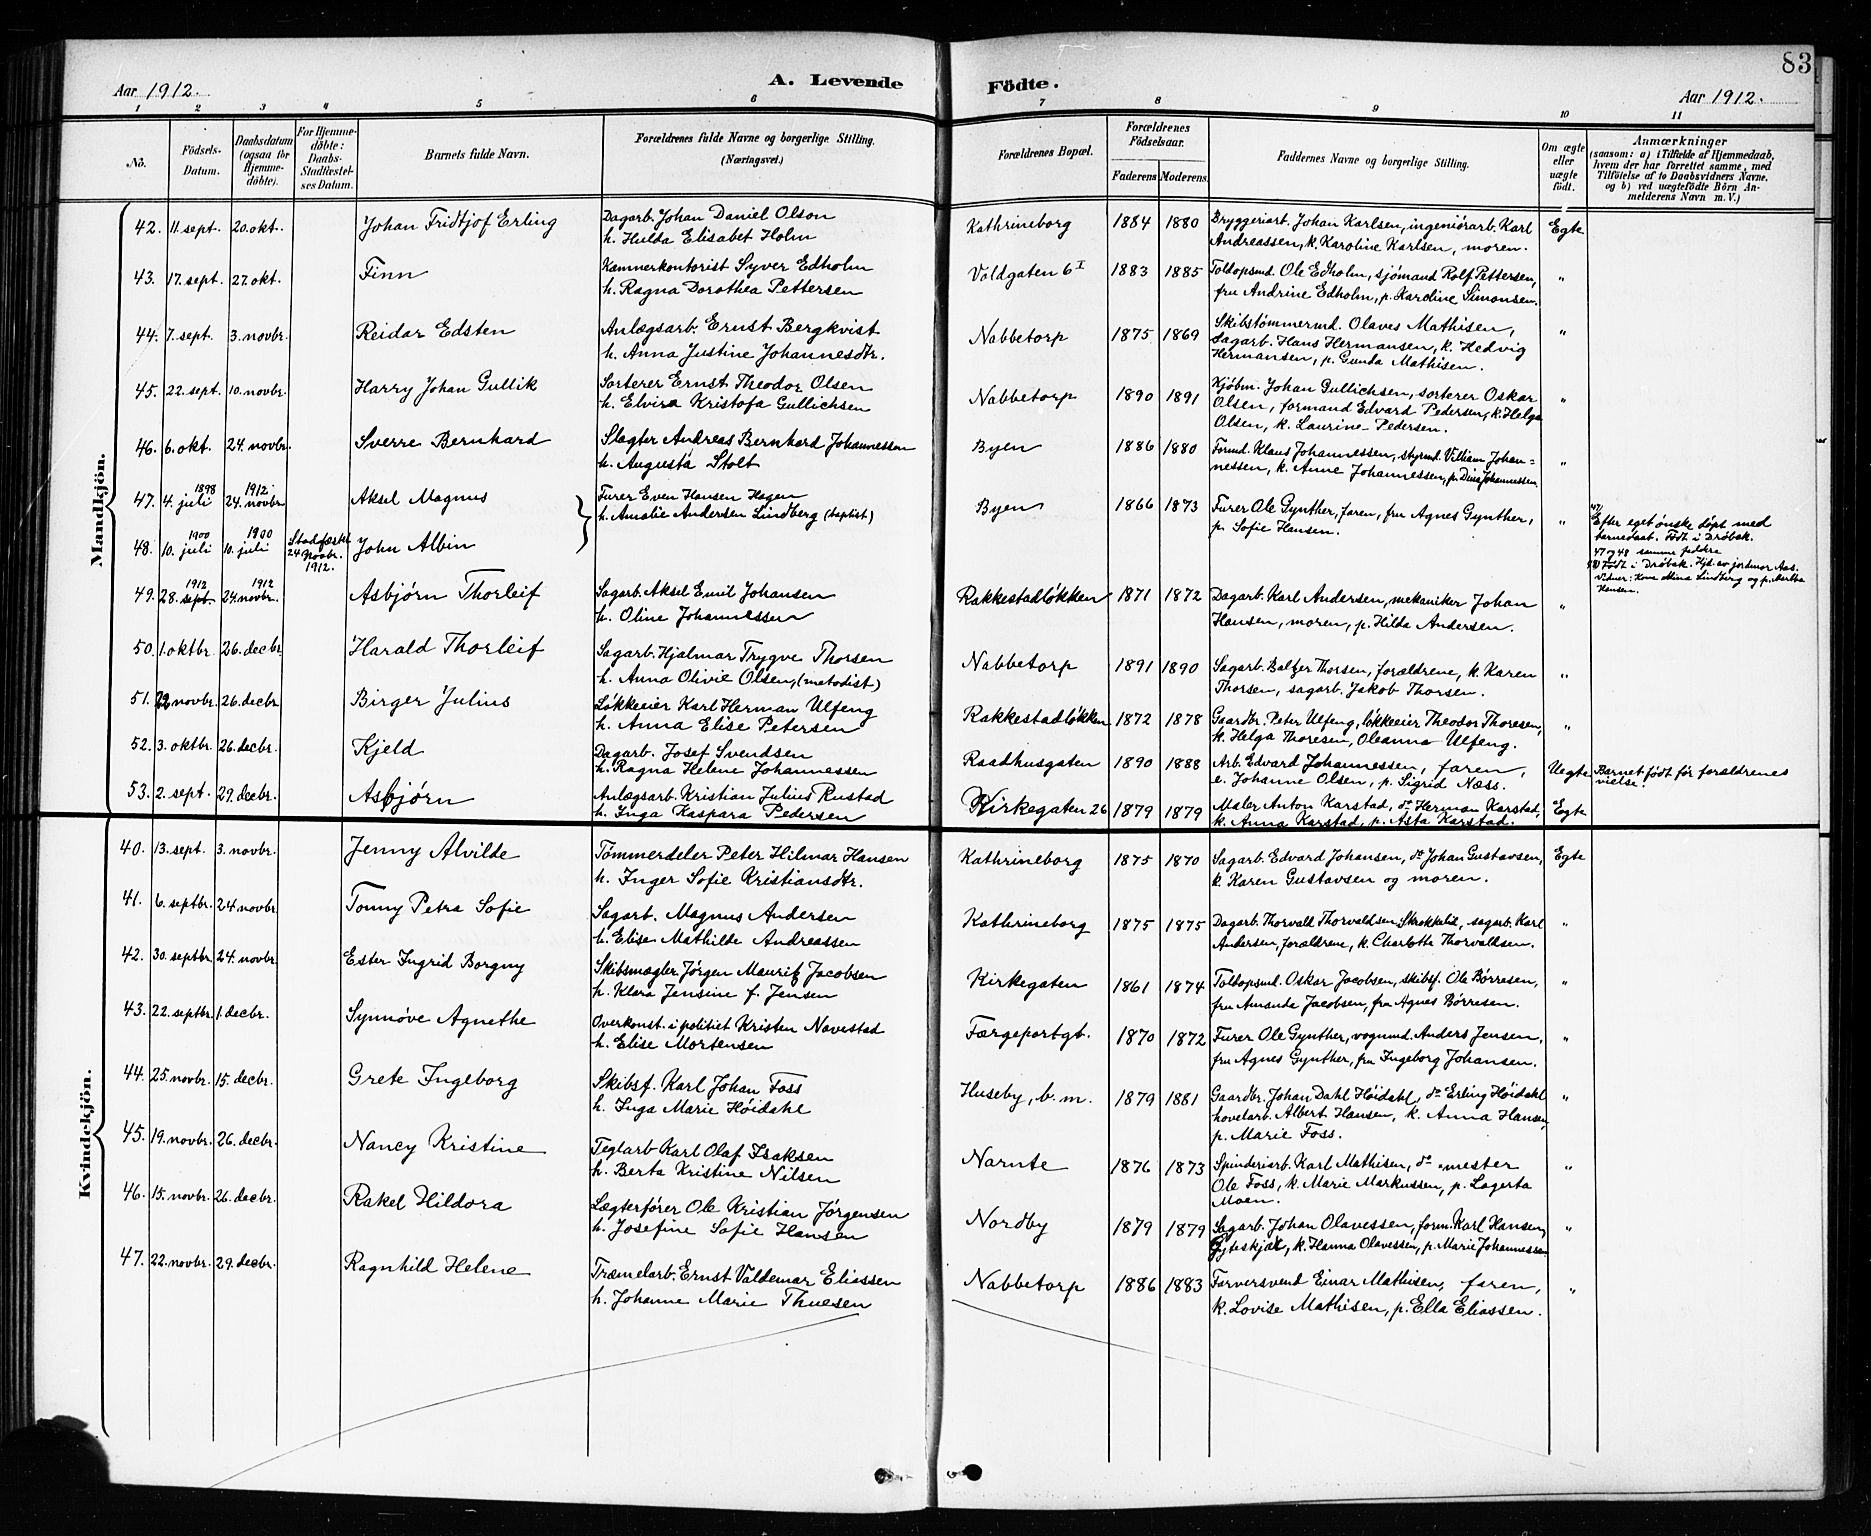 83
Aar 1912.
A. Levende
Födte.
Aar 1912.
1 2 3 4 5 6 7 8 9 10 11
No.
Födsels-
Datum.
Daabsdatum
(ogsaa for
Hjemme-
döbte).
For Hjemme-
döbte:
Daabs-
Stadfæstel-
ses Datum.
Barnets fulde Navn.
Forældrenes fulde Navne og borgerlige Stilling.
(Næringsvei.)
Forældrenes Bopæl.
Forældrenes
Födselsaar.
Faderens Moderens
Faddernes Navne og borgerlige Stilling.
Om ægte
eller
uægte
födt.
Anmærkninger
(saasom: a) i Tilfælde af Hjemmedaab,
hvem der har forrettet samme, med
Tilföielse af to Daabsvidners Navne,
og b) ved uægtefödte Börn An-
melderens Navn m. V.)
Mandkjön.
42. 11. sept. 20. okt. Johan Fridtjof Erling Dagarb. Johan Daniel Olson
h. Hulda Elisabet Holm
Kathrineborg 1884 1880 Bryggeriarb. Johan Karlsen, ingeniörarb. Karl
Andreassen, k. Karoline Karlsen, moren. Egte
43. 17. sept. 27. okt. Finn Kæmnerkontorist Syver Edholm
h. Ragna Dorothea Pettersen
Voldgaten 6 I 1883 1885 Toldopsmd. Ole Edholm, sjömand Rolf Pettersen,
fru Andrine Edholm, p. Karoline Simonsen. "
44. 7. sept. 3. novbr. Reidar Edsten Anlægsarb. Ernst Bergkvist
h. Anna Justine Johannesdtr.
Nabbetorp 1875 1869 Skibstömmermd. Olaves Mathisen,
Sagarb. Hans Hermansen, k. Hedvig
Hermansen, p. Gunda Mathisen. "
45. 22. sept. 10. novbr. Harry Johan Gullik Sorterer Ernst Theodor Olsen
h. Elvira Kristofa Gullichsen
Nabbetorp 1890 1891 Kjøbm. Johan Gullichsen, sorterer Oskar
Olsen, formand Edvard Pedersen, k. Helga
Olsen, k. Laurine Pedersen. "
46. 6. okt. 24. novbr. Sverre Bernhard Slagter Andreas Bernhard Johannessen
h. Augusta Stolt
Byen 1886 1880 Formd. Klaus Johannessen, styrmd. Villiam Johan=
nessen, k. Anne Johannessen, p. Dina Johannessen "
47. 4. juli 1898 24. novbr 1912 Aksel Magnus Furer Even Hansen Hagen
h. Amalie Andersen Lindberg (baptist)
Byen 1866 1873 Furer Ole Gynther, faren, fru Agnes Gynther,
p. Sofie Hansen. "
47/ Efter eget ønske døpt med
barnedaab. Født i Drøbak.
48. 10. juli 1900 10. juli 1900 Stadfæstet
24 Novbr.
1912. John Albin
47 og 48 samme fældre
48) Født i Drøbak. Hjd. av jordmor Aas.
Vidner: Kone Mina Lindberg og p. Martha
Hansen.
49. 28. sept. 1912 24. novbr. 1912 Asbjørn Thorleif Sagarb. Aksel Emil Johansen
h. Oline Johannessen
Rakkestadløkken 1871 1872 Dagarb. Karl Andersen, mekaniker Johan
Hansen, moren, p. Hilda Andersen. "
50. 1. oktbr. 26. decbr. Harald Thorleif Sagarb. Hjalmar Trygve Thorsen
h. Anna Olivie Olsen, (metodist)
Nabbetorp 1891 1890 Sagarb. Baltzer Thorsen, forældrene, k. Karen
Thorsen, sagarb. Jakob Thorsen. "
51. 22 novbr. 26. decbr. Birger Julius Løkkeeier Karl Herman Ulfeng
h. Anna Elise Petersen
Rakkestadløkken 1872 1878 Gaardbr. Peter Ulfeng, løkkeeier Theodor Thoresen,
k. Helga Thoresen, Oleanna Ulfeng. "
52. 3. oktbr. 26. decbr. Kjeld Dagarb. Josef Svendsen
h. Ragna Helene Johannessen
Raadhusgaten 1890 1888 Arb. Edvard Johannessen, faren,
e. Johanne Olsen, p. Sigrid Næss. Uegte Barnet født før forældrenes
vielse.
53. 2. sept. 29. decbr. Asbjørn Anlægsarb. Kristian Julius Rustad
h. Inga Kaspara Pedersen
Kirkegaten 26 1879 1879 Maler Anton Karstad, do Herman Karstad,
k. Anna Karstad, p. Asta Karstad. Egte
Kvindekjön.
40. 13. sept. 3. novbr. Jenny Alvilde Tømmerdeler Peter Hilmar Hansen
h. Inger Sofie Kristiansdtr.
Kathrineborg 1875 1870 Sagarb. Edvard Johansen, do Johan Gustavsen,
k. Karen Gustavsen og moren. Egte
41. 6. septbr. 24 novbr. Tonny Petra Sofie Sagarb. Magnus Andersen
h. Elise Mathilde Andreassen
Kathrineborg 1875 1875 Dagarb. Thorvald Thorvaldsen Skrokkelid, sagarb. Karl
Andersen, forældrene, k. Charlotte Thorvaldsen. "
42. 30. septbr. 24. novbr. Ester Ingrid Borgny Skibsmægler Jørgen Mauritz Jacobsen
h. Klara Jensine f. Jensen
Kirkegaten 1861 1874 Toldopsmd. Oskar Jacobsen, skibsf. Ole Børresen,
fru Amanda Jacobsen, fru Agnes Børresen. "
43. 22. septbr. 1. decbr. Synnøve Agnethe Overkonst. i politiet Kristen Navestad
h. Elise Mortensen
Færgeportgt. 1870 1872 Furer Ole Gynther, vognmd. Anders Jensen,
fru Agnes Gynther, fru Ingeborg Johansen. "
44. 25. novbr. 15. decbr. Grete Ingeborg Skibsf. Karl Johan Foss
h. Inga Marie Høidahl
Huseby, b. m. 1879 1881 Gaardbr. Johan Dahl Høidahl, do Erling Høidahl
hovelarb. Albert Hansen, k. Anna Hansen,
p. Marie Foss. "
45. 19. novbr. 26. decbr. Nancy Kristine Teglarb Karl Olaf Isaksen
h. Berta Kristine Nilsen
Narnte 1876 1873 Spinderiarb. Karl Mathisen, do mester
Ole Foss, k. Marie Markussen, p. Lagerta
Moen. "
46. 15. novbr. 26. decbr. Rakel Hildora Lægterfører Ole Kristian Jørgensen
h. Josefine Sofie Hansen
Nordby 1879 1879 Sagarb. Johan Olavessen, form. Karl Hansen
k. Hanna Olavessen, p. Marie Johannessen "
47. 22. novbr. 29. decbr. Ragnhild Helene Træmelarb. Ernst Valdemar Eliassen
h. Johanne Marie Thuesen
Nabbetorp 1886 1883 Farversvend Einar Mathisen, faren,
k. Lovise Mathisen, p. Ella Eliassen. "